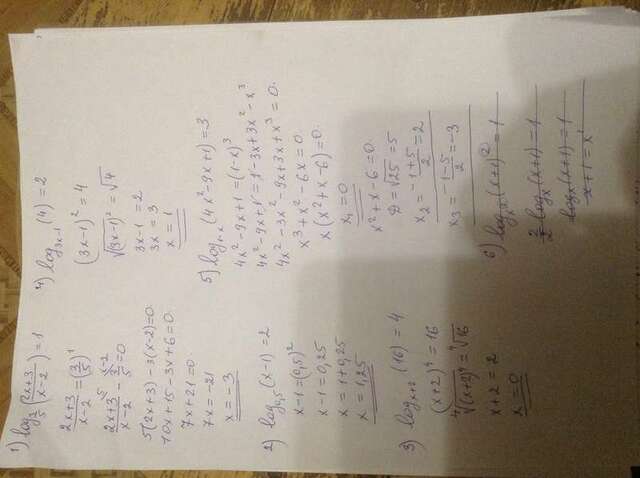 1) log_{3/5} ((2x+3)/(x-2)) = 1
(2x+3)/(x-2) = (3/5)^1
(2x+3)/(x-2) ^5 - 3/5 ^{x-2} = 0
5(2x+3) - 3(x-2) = 0
10x + 15 - 3x + 6 = 0
7x + 21 = 0
7x = -21
x = -3
2) log_{0,5} (x-1) = 2
x-1 = (0,5)^2
x-1 = 0,25
x = 1+0,25
x = 1,25
3) log_{x+2} (16) = 4
(x+2)^4 = 16
⁴√(x+2)^4 = ⁴√16
x+2 = 2
x = 0
4) log_{3x-1} (4) = 2
(3x-1)^2 = 4
√(3x-1)^2 = √4
3x-1 = 2
3x = 3
x = 1
5) log_{1-x} (4x^2-9x+1) = 3
4x^2-9x+1 = (1-x)^3
4x^2-9x+1 = 1-3x+3x^2-x^3
4x^2-3x^2-9x+3x+x^3 = 0
x^3+x^2-6x = 0
x(x^2+x-6) = 0
x_1 = 0
x^2+x-6 = 0
D = √25 = 5
x_2 = (-1+5)/2 = 2
x_3 = (-1-5)/2 = -3
6) log_{x^2} (x+1)^2 = 1
2/2 log_x (x+1) = 1
log_x (x+1) = 1
x+1 = x